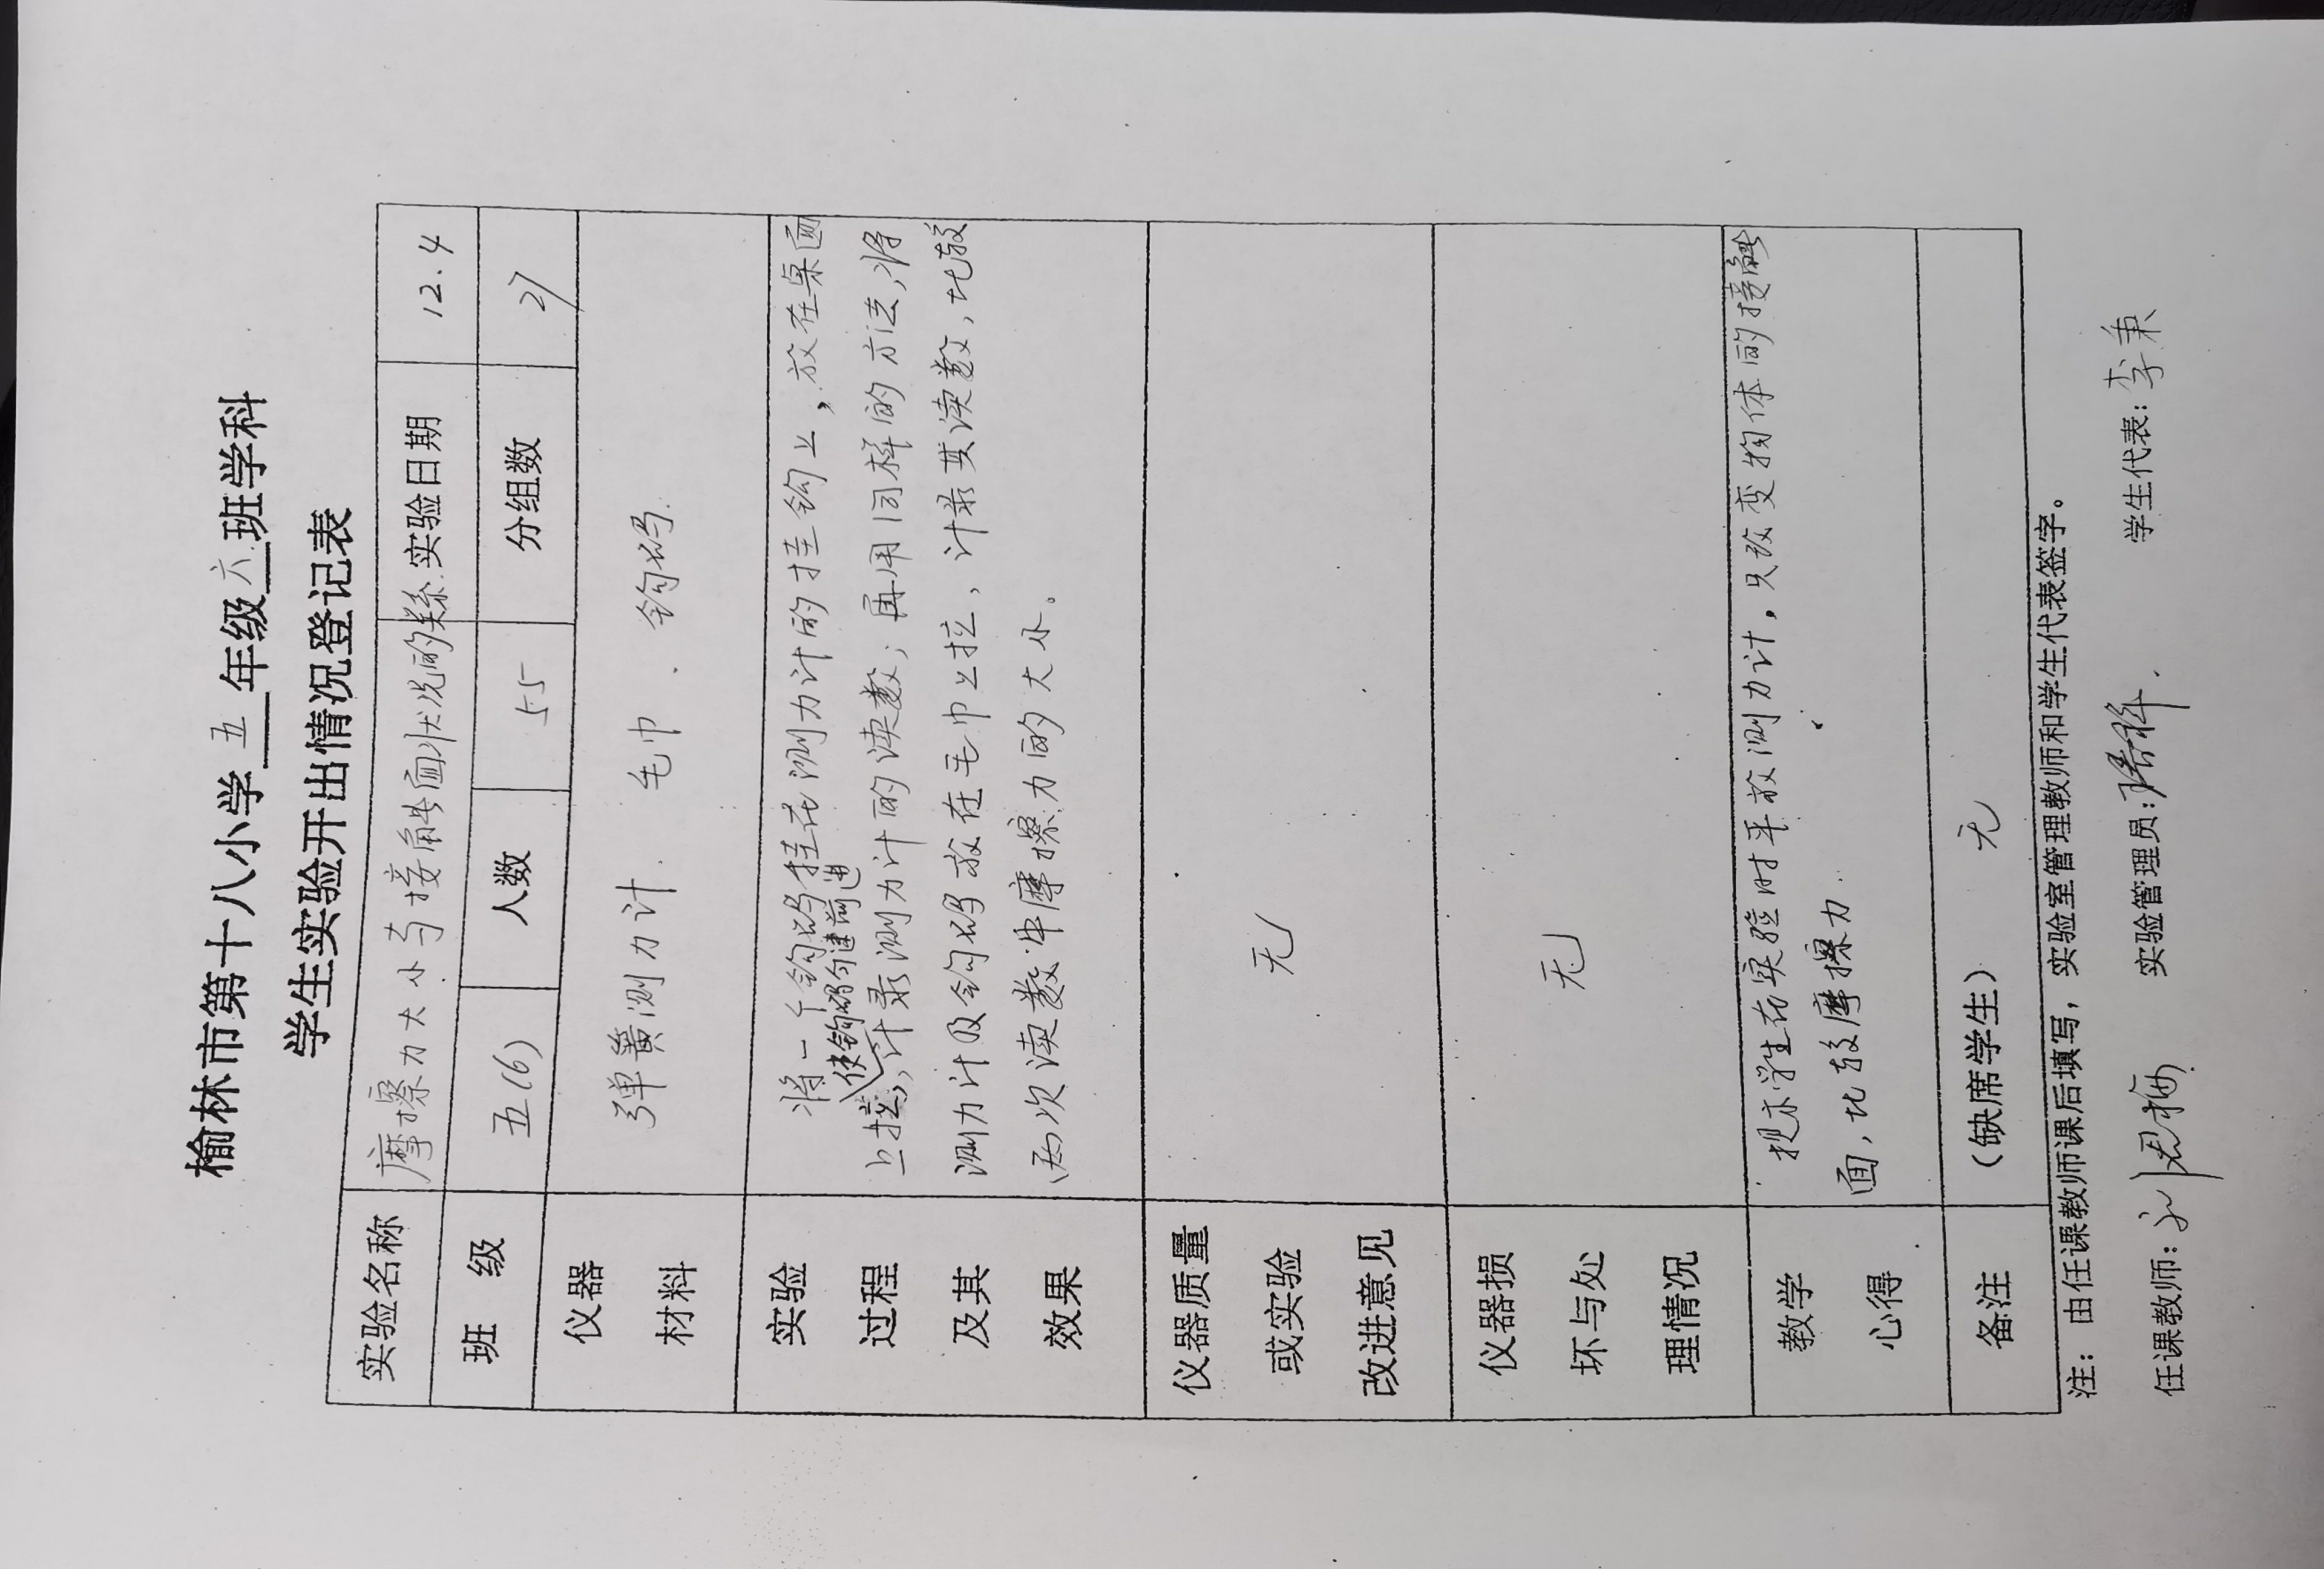 榆林市第十八小学五年级六班学科
学生实验开出情况登记表
实验名称 摩擦力大小与接触面状况的关系 实验日期 12.4
班 级 五(6) 人数 55 分组数 27
仪器 弹簧测力计. 毛巾 . 钩码.
材料
实验 将一个钩码挂在测力计的挂钩上,放在桌面
使钩码匀速前进
过程 上拉,计录测力计的读数;再用同样的方法,将
及其 测力计及钩码放在毛巾上拉,计录其读数,比较
效果 两次读数中摩擦力的大小。
仪器质量
或实验 无
改进意见
仪器损
坏与处 无
理情况
教学 提示学生在实验时平放测力计,只改变物体的接触
心得 面,比较摩擦力.
备注 (缺席学生) 无
注: 由任课教师课后填写, 实验室管理教师和学生代表签字。
任课教师: 实验管理员: 学生代表: 李秉